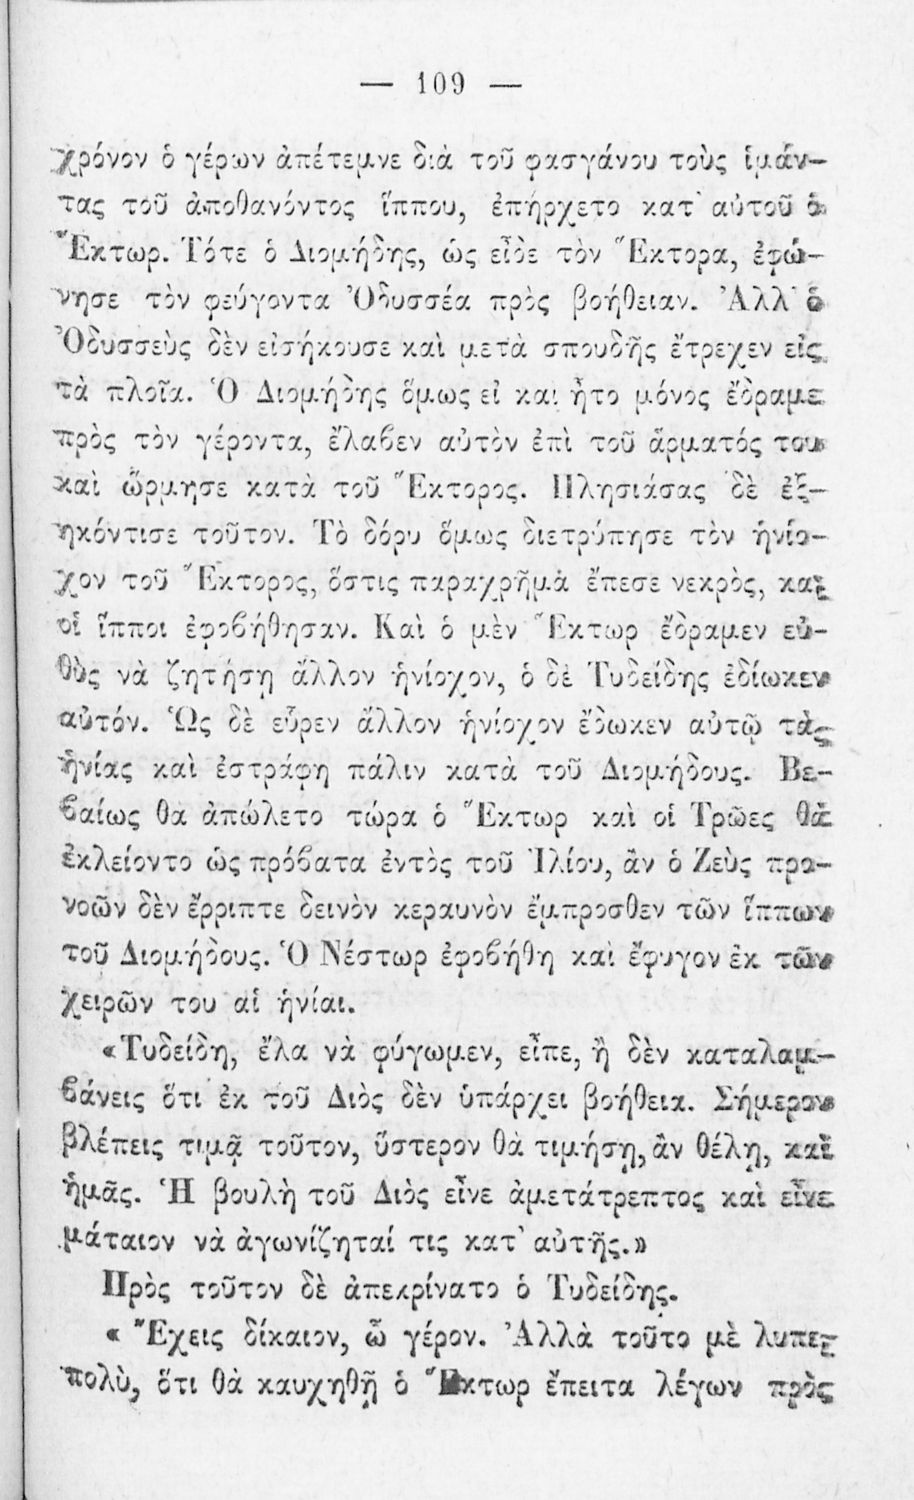 — 109 —
χρόνον ὁ γέρων ἀπέτεμνε διὰ τοῦ φασγάνου τοὺς ἱμάν-
τας τοῦ ἀποθανόντος ἵππου, ἐπήρχετο κατ' αὐτοῦ ὁ
Ἕκτωρ. Τότε ὁ Διομήδης, ὡς εἶδε τὸν Ἕκτορα, ἐφώ-
νησε τὸν φεύγοντα Ὀδυσσέα πρὸς βοήθειαν. Ἀλλ' ὁ
Ὀδυσσεὺς δὲν εἰσήκουσε καὶ μετὰ σπουδῆς ἔτρεχεν εἰς
τὰ πλοῖα. Ὁ Διομήδης ὅμως εἰ και ἦτο μόνος ἔδραμε
πρὸς τὸν γέροντα, ἔλαβεν αὐτὸν ἐπὶ τοῦ ἅρματός του
καὶ ὥρμησε κατὰ τοῦ Ἕκτορος. Πλησιάσας δὲ ἐξ-
ηκόντισε τοῦτον. Τὸ δόρυ ὅμως διετρύπησε τὸν ἡνίο-
χον τοῦ Ἕκτορος, ὅστις παραχρῆμὰ ἔπεσε νεκρὸς, καὶ
οἱ ἵπποι ἐφοβήθησαν. Καὶ ὁ μὲν Ἕκτωρ ἔδραμεν εὐ-
θὺς νὰ ζητήσῃ ἄλλον ἡνίοχον, ὁ δὲ Τυδείδης ἐδίωκεν
αὐτόν. Ὡς δὲ εὗρεν ἄλλον ἡνίοχον ἔδωκεν αὐτῷ τὰς
ἡνίας καὶ ἐστράφη πάλιν κατὰ τοῦ Διομήδους. Βε-
βαίως θα ἀπώλετο τώρα ὁ Ἕκτωρ καὶ οἱ Τρῶες θὰ
ἐκλείοντο ὡς πρόβατα ἐντὸς τοῦ Ἰλίου, ἂν ὁ Ζεὺς προ-
νοῶν δὲν ἔρριπτε δεινὸν κεραυνὸν ἔμπροσθεν τῶν ἵππων
τοῦ Διομήδους. Ὁ Νέστωρ ἐφοβήθη καὶ ἔφυγον ἐκ τῶν
χειρῶν του αἱ ἡνίαι.
«Τυδείδη, ἔλα νὰ φύγωμεν, εἶπε, ἢ δὲν καταλαμ-
βάνεις ὅτι ἐκ τοῦ Διὸς δὲν ὑπάρχει βοήθεια. Σήμερον
βλέπεις τιμᾷ τοῦτον, ὕστερον θὰ τιμήσῃ, ἂν θέλῃ, καὶ
ἡμᾶς. Ἡ βουλὴ τοῦ Διὸς εἶνε ἀμετάτρεπτος καὶ εἶνε
μάταιον νὰ ἀγωνίζηταί τις κατ' αὐτῆς.»
Πρὸς τοῦτον δὲ ἀπεκρίνατο ὁ Τυδείδης.
« Ἔχεις δίκαιον, ὦ γέρον. Ἀλλὰ τοῦτο μὲ λυπεῖ
πολὺ, ὅτι θὰ καυχηθῇ ὁ Ἕκτωρ ἔπειτα λέγων πρὸς